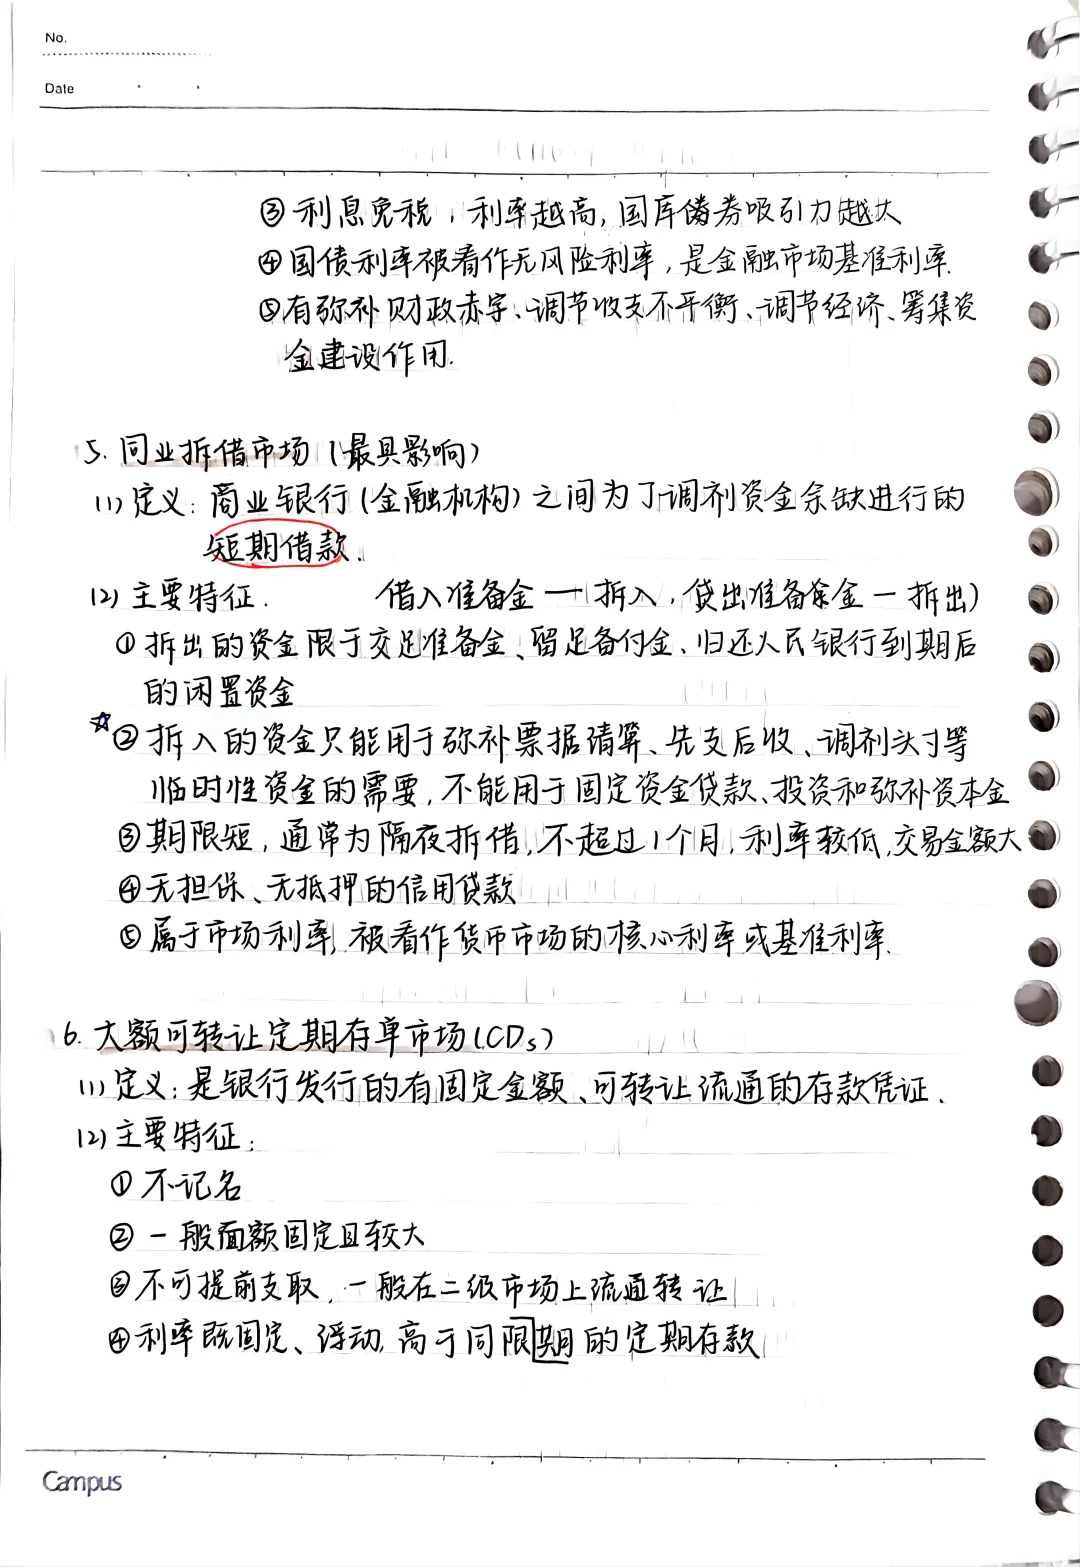 No.
Date
③ 利息免税，利率越高，国库债券吸引力越大
④ 国债利率被看作无风险利率，是金融市场基准利率.
⑤ 有弥补财政赤字、调节收支不平衡、调节经济、筹集资
金建设作用.
5. 同业拆借市场（最具影响）
(1) 定义：商业银行（金融机构）之间为了调剂资金余缺进行的
短期借款.
(2) 主要特征. 借入准备金一拆入，贷出准备金一拆出）
① 拆出的资金限于交足准备金、留足备付金、归还人民银行到期后
的闲置资金
☆② 拆入的资金只能用于弥补票据清算、先支后收、调剂头寸等
临时性资金的需要，不能用于固定资金贷款、投资和弥补资本金
③ 期限短，通常为隔夜拆借，不超过1个月，利率较低，交易金额大
④ 无担保、无抵押的信用贷款
⑤ 属于市场利率，被看作货币市场的核心利率或基准利率.
6. 大额可转让定期存单市场(CDs)
(1) 定义：是银行发行的有固定金额、可转让流通的存款凭证.
(2) 主要特征：
① 不记名
② 一般面额固定且较大
③ 不可提前支取，一般在二级市场上流通转让
④ 利率既固定、浮动，高于同限期的定期存款
Campus